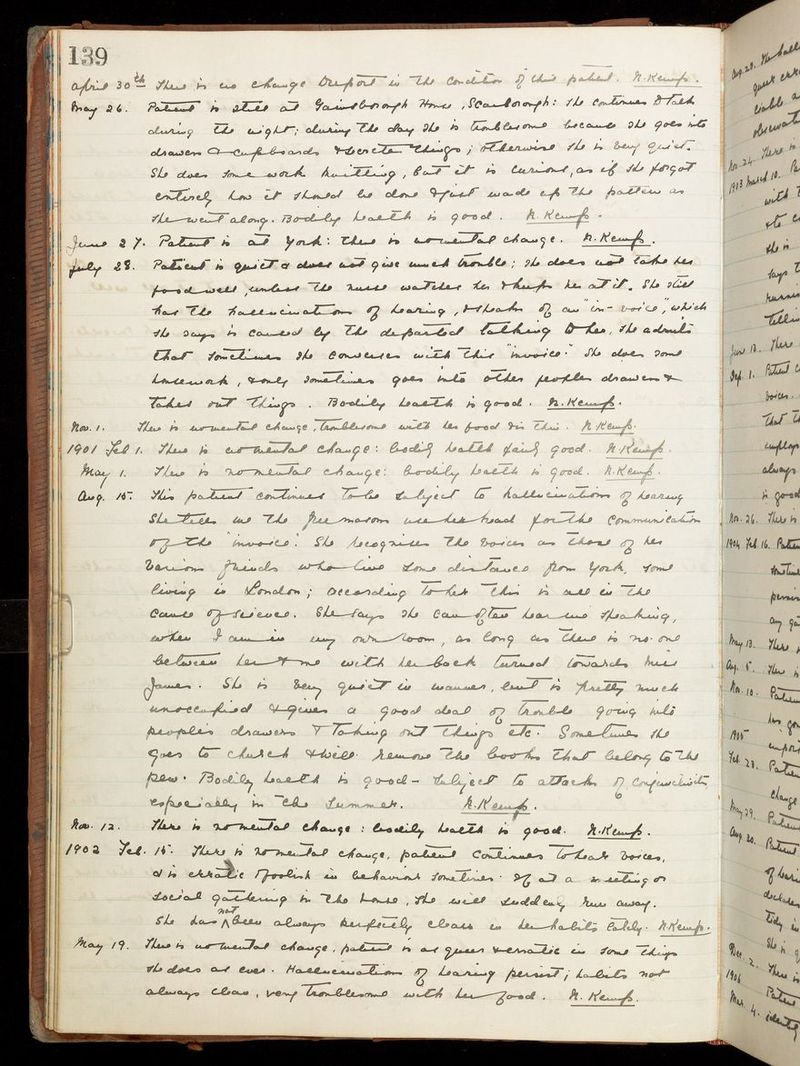 139
April 30th There is no change to report in the condition of this patient. N. Kemp.
May 26. Patient is still at Gainsborough House, Scarborough: she continues to talk
during the night; during the day she is troublesome because she goes into
drawers & cupboards & secretes things; otherwise she is very quiet.
She does some work knitting, but it is curious, as if she forgot
entirely how it should be done & just made up the pattern as
she went along. Bodily health is good. N. Kemp.
June 27. Patient is at York: there is no mental change. N. Kemp.
July 28. Patient is quiet & does not give much trouble; she does not take her
food well, unless the nurse watches her & keeps her at it. She still
has the hallucinations of hearing, & speaks of an "in-voice", which
she says is caused by the departed talking to her, she admits
that sometimes she converses with this "invoice." She does some
housework, & only sometimes goes into other peoples drawers &
takes out things. Bodily health is good. N. Kemp.
Nov. 1. There is no mental change, troublesome with her food & is thin. N. Kemp.
1901 Feb 1. There is no mental change: bodily health fairly good. N. Kemp.
May 1. There is no mental change: bodily health is good. N. Kemp.
Aug. 15. This patient continues to be subject to hallucinations of hearing
She tells me the free masons use her head for the communication
of the "invoice". She recognises the voices as those of her
various friends who live some distance from York, some
living in London; according to her this is all in the
cause of science. She says she can often hear me speaking,
when I am in my own room, as long as there is no one
between her & me with her back turned towards Miss
James. She is very quiet in manner, but is pretty much
unoccupied & gives a good deal of trouble going into
people's drawers & taking out things etc. Sometimes she
goes to church & will remove the books that belong to the
pew. Bodily health is good - subject to attacks of conjunctivitis
especially in the summer. N. Kemp.
Nov. 12. There is no mental change: bodily health is good. N. Kemp.
1902 Feb. 15. There is no mental change, patient continues to hear voices,
& is erratic & foolish in behaviour sometimes. If at a meeting or
social gathering in the house, she will suddenly run away.
She has not been always perfectly clean in her habits lately. N. Kemp.
May 19. There is no mental change, patient is as queer & erratic in some things
she does as ever. Hallucinations of hearing persist; habits not
always clean, very troublesome with her food. N. Kemp.